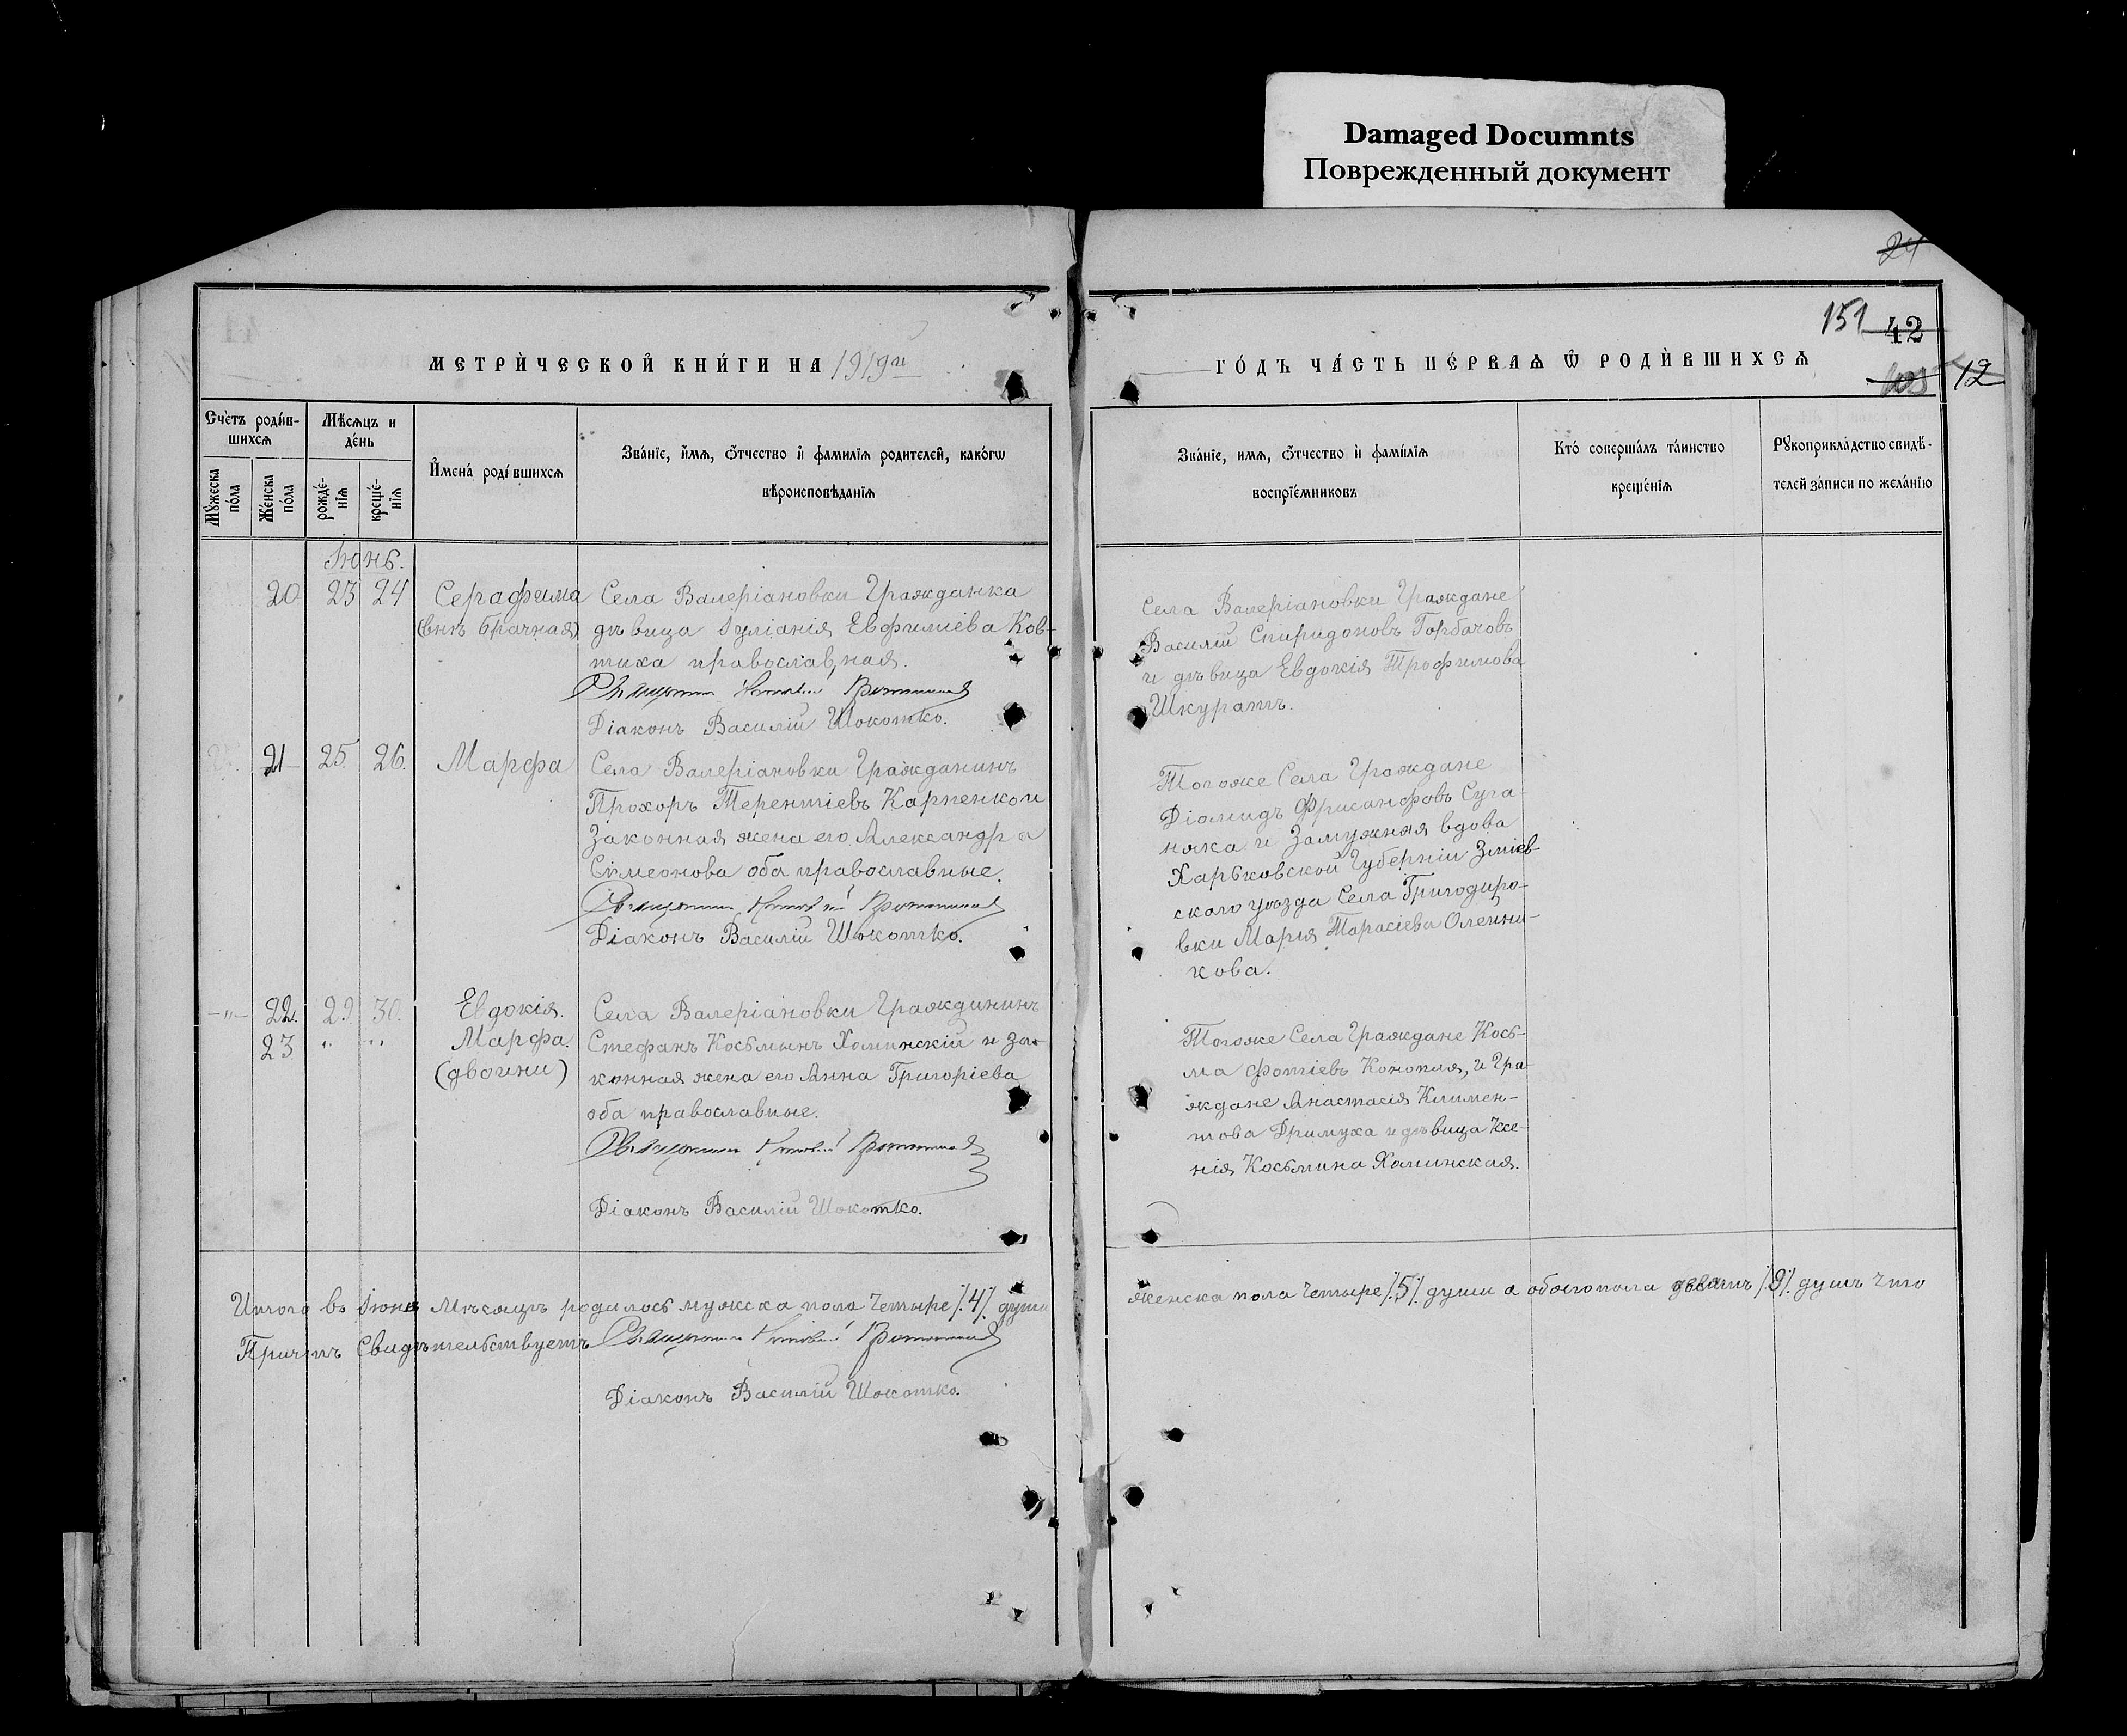 Damaged Documnts
Поврежденный документ
24
151 42
105 12
МЕТРИ́ЧЕСКОЙ КНИ́ГИ НА 1919й
ГО́ДЪ ЧА́СТЬ ПЕ́РВАѦ Ѿ РОДИ́ВШИХСѦ
Счетъ роди́в-
шихсѧ
Мѣсѧцъ и
де́нь
Мꙋжеска
по́ла
Же́нска
по́ла
рожде́-
нїѧ
креще́-
нїѧ
И҆мена̀ роди́вшихсѧ
Зва́нїе, и҆́мѧ, ѻ҆́тчество и҆ фамилїѧ родителей, како́гѡ
вѣроисповѣ́данїѧ
Зва́нїе, имѧ, ѻ҆́тчество и҆ фами́лїѧ
воспрїе́мниковъ
Кто́ соверша́лъ та́инство
креще́нїѧ
Рꙋкоприкла́дство свидѣ́-
телей за́писи по жела́нїю
Іюнь.
20 23 24 Серафима Села Валеріановки Гражданка
(внѣ брачная) дѣвица Іуліанія Евфиміева Ков-
тиха православная.
Діаконъ Василій Шокотко.
Села Валеріановки Граждане
Василій Спиридоновъ Горбачовъ
и дѣвица Евдокія Трофимова
Шкуратъ.
21 25. 26. Марфа Села Валеріановки Гражданинъ
Прохоръ Терентіевъ Карпенко и
Законная жена его Александра
Симеонова оба православные.
Діаконъ Василій Шокотко.
Тогоже Села Граждане
Діомидъ Фрисанфовъ Суга-
няка и Замужняя вдова
Харьковской Губерніи Зміев-
скаго уѣзда Села Григодиро-
вки Марія Тарасіева Олейни-
кова.
-"- 22. 29. 30. Евдокія. Села Валеріановки Гражданинъ
23. " " Марфа. Стефанъ Косьминъ Хоминскій и за-
(двойни) конная жена его Анна Григоріева
оба православные.
Діаконъ Василій Шокотко.
Тогоже Села Граждане Кось-
ма Фотіевъ Конопля, и Гра-
ждане Анастасія Климен-
това Дримуха и дѣвица Ксе-
нія Косьмина Хоминская.
Итого въ Іюнѣ Мѣсяцѣ родилось мужска пола четыре /.4/. души
женска пола четыре /.5/. души а обоего пола девять /.9/. душъ что
Причтъ Свидѣтельствуетъ
Діаконъ Василій Шокотко.